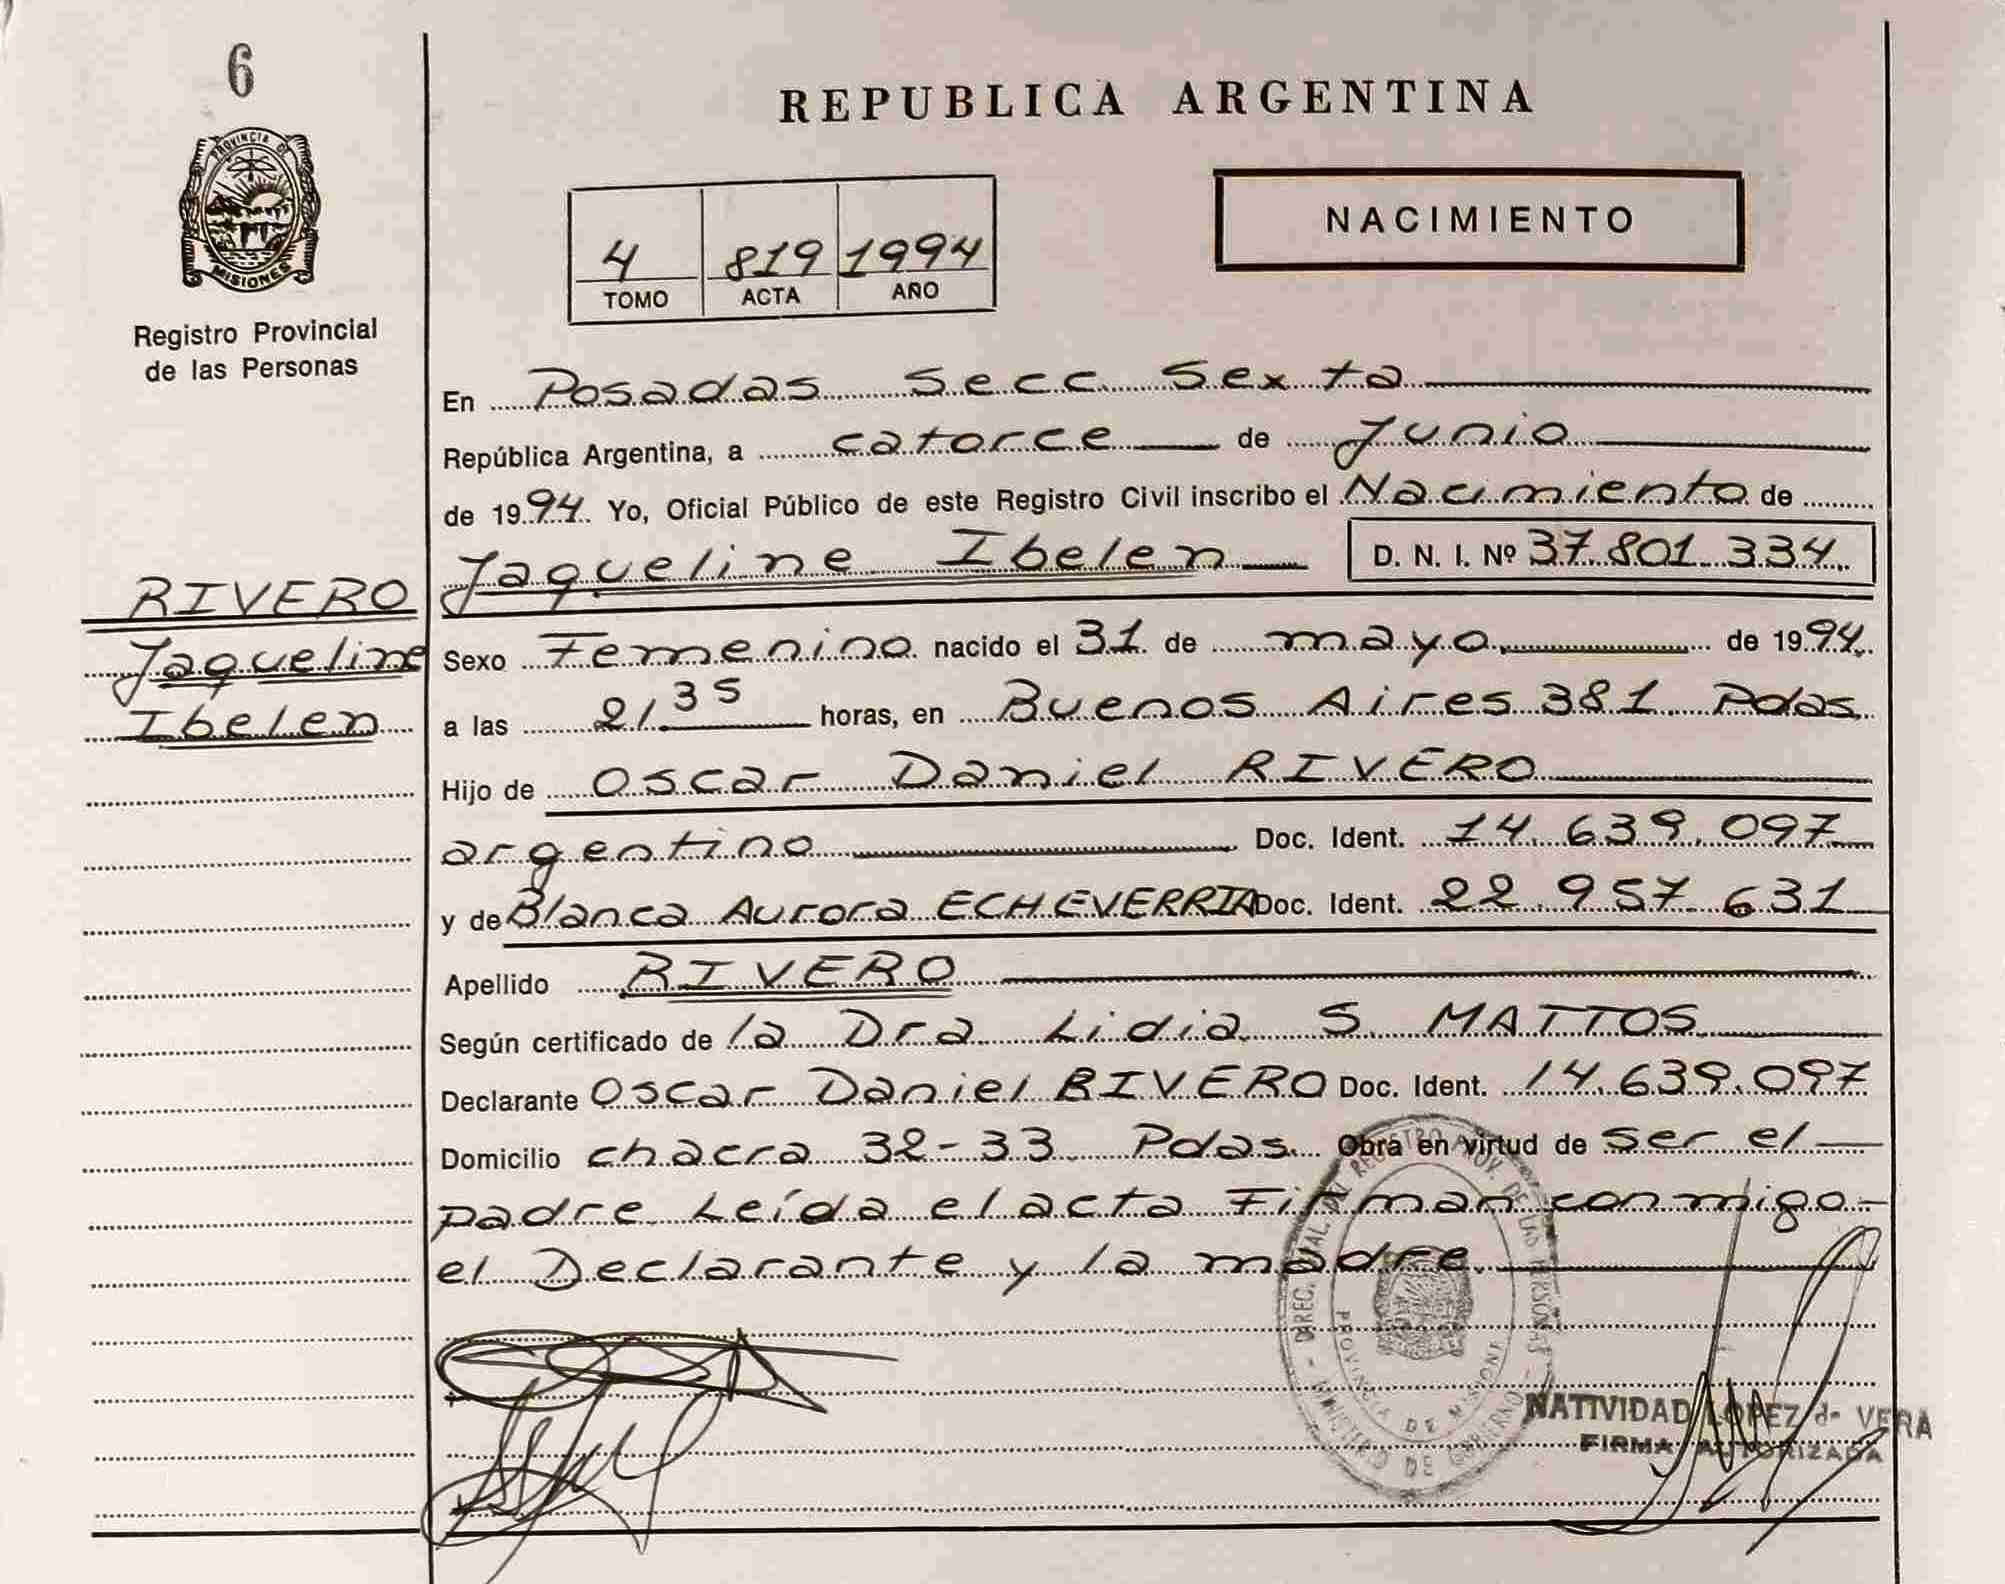 6
REPUBLICA ARGENTINA
PROVINCIA DE
MISIONES
Registro Provincial
de las Personas
4 819 1994
TOMO ACTA AÑO
NACIMIENTO
En Posadas Secc. Sexta
República Argentina, a catorce de Junio
de 1994. Yo, Oficial Público de este Registro Civil inscribo el Nacimiento de
Jaqueline Ibelen D. N. I. Nº 37.801.334.
RIVERO
Jaqueline
Ibelen
Sexo Femenino nacido el 31 de mayo de 1994.
a las 21.35 horas, en Buenos Aires 381 Pdas.
Hijo de Oscar Daniel RIVERO
argentino Doc. Ident. 14.639.097
y de Blanca Aurora ECHEVERRIA Doc. Ident. 22.957.631
Apellido RIVERO
Según certificado de la Dra Lidia S. MATTOS
Declarante Oscar Daniel RIVERO Doc. Ident. 14.639.097
Domicilio chacra 32-33 Pdas. Obra en virtud de ser el
padre. Leída el acta Firman conmigo
el Declarante y la madre.
DIREC. GRAL. DEL REGISTRO PROV. DE LAS PERSONAS
MINISTERIO DE GOBIERNO
PROVINCIA DE MISIONES
NATIVIDAD LOPEZ de VERA
FIRMA AUTORIZADA